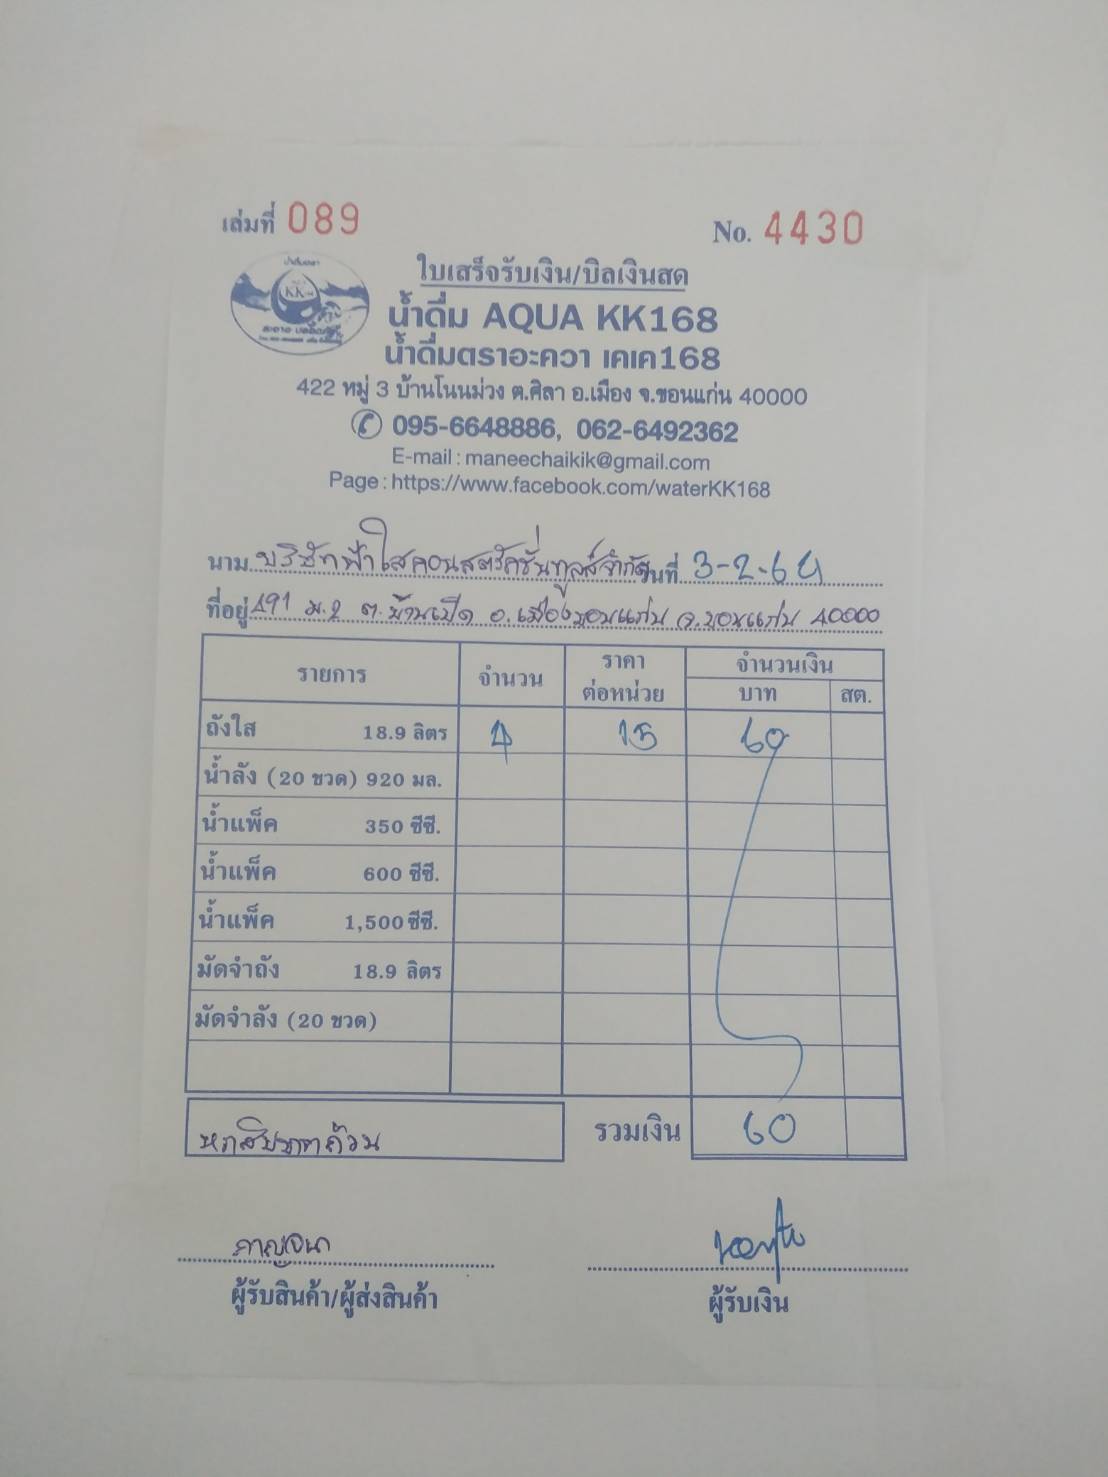 เล่มที่ 089
No. 4430
น้ำดื่มตรา
KK168
สะอาด ปลอดภัย
ใบเสร็จรับเงิน/บิลเงินสด
น้ำดื่ม AQUA KK168
น้ำดื่มตราอะควา เคเค168
422 หมู่ 3 บ้านโนนม่วง ต.ศิลา อ.เมือง จ.ขอนแก่น 40000
095-6648886, 062-6492362
E-mail : maneechaikik@gmail.com
Page : https://www.facebook.com/waterKK168
นาม บริษัทฟ้าใสคอนสตรัคชั่นทูลส์จำกัด วันที่ 3-2-64
ที่อยู่ 491 ม.2 ต.บ้านเป็ด อ.เมืองขอนแก่น จ.ขอนแก่น 40000
รายการ จำนวน ราคาต่อหน่วย จำนวนเงิน
บาท สต.
ถังใส 18.9 ลิตร 4 15 60
น้ำลัง (20 ขวด) 920 มล.
น้ำแพ็ค 350 ซีซี.
น้ำแพ็ค 600 ซีซี.
น้ำแพ็ค 1,500 ซีซี.
มัดจำถัง 18.9 ลิตร
มัดจำลัง (20 ขวด)
หกสิบบาทถ้วน รวมเงิน 60
กาญจนา
ผู้รับสินค้า/ผู้ส่งสินค้า ผู้รับเงิน